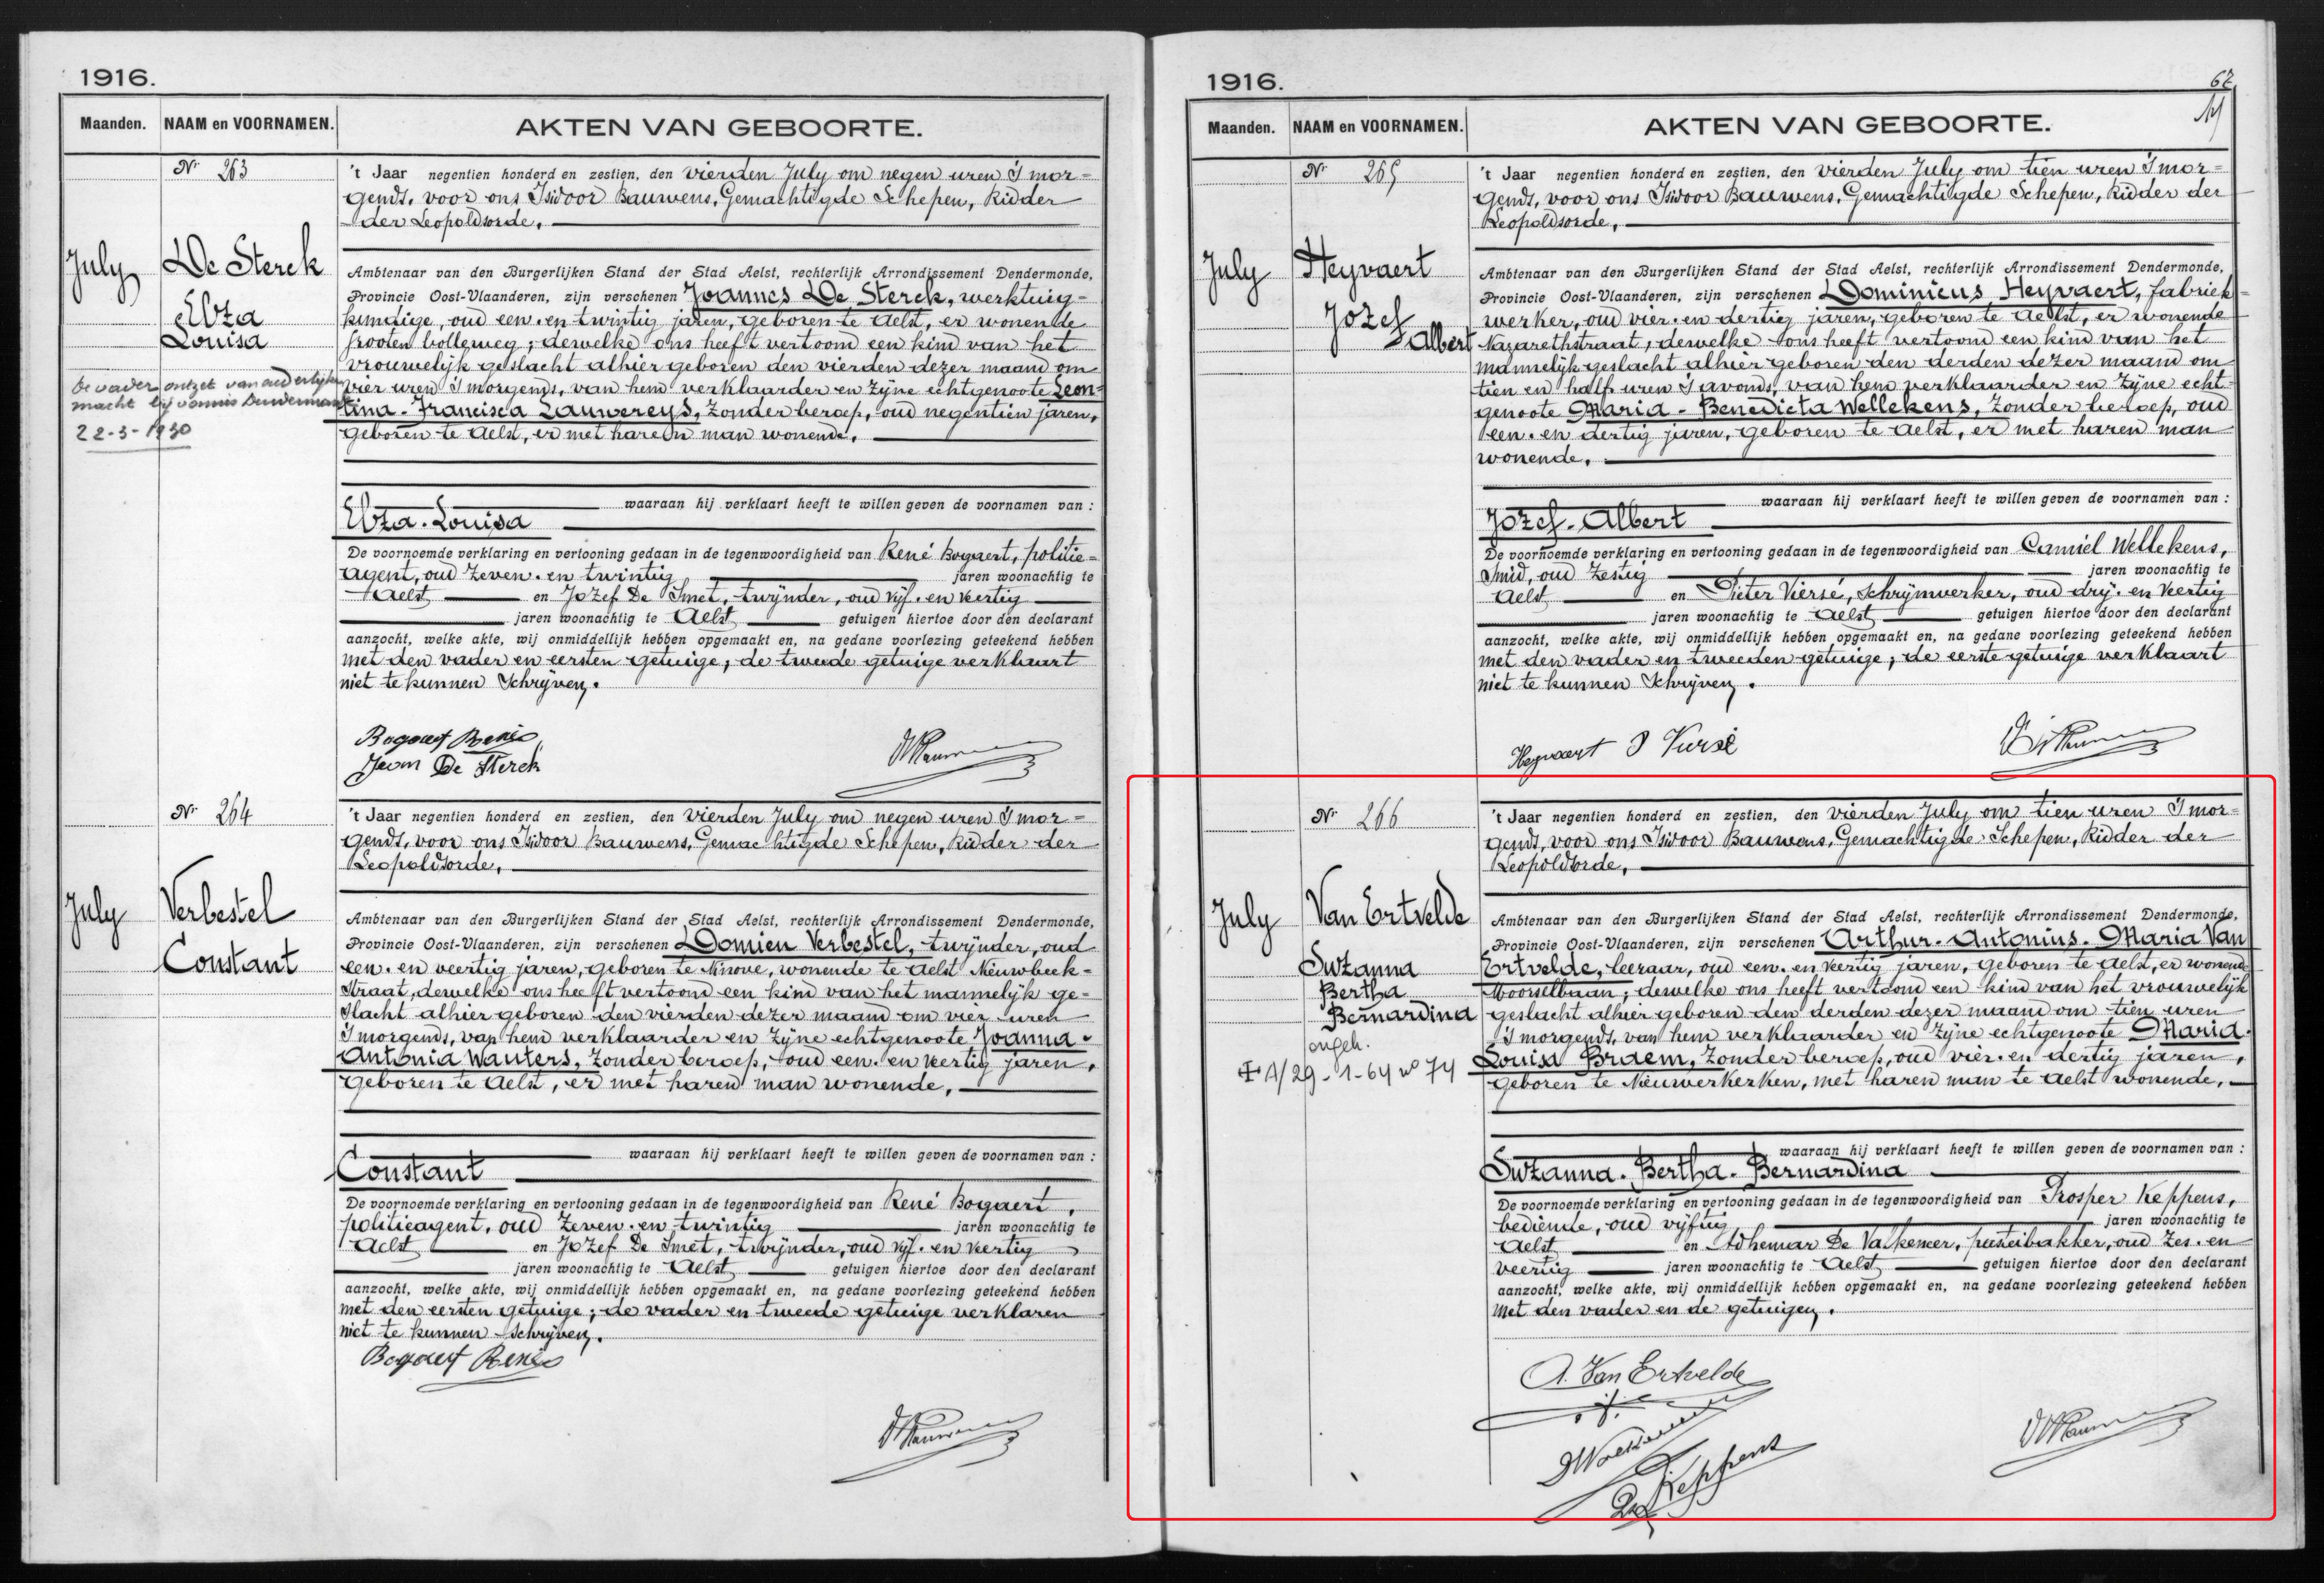 1916.
Maanden. NAAM en VOORNAMEN. AKTEN VAN GEBOORTE.
Nr 263
July
De Sterck
Elza
Louisa
De vader ontzet van ouderlijke
macht bij vonnis Dendermonde
22-3-1930
't Jaar negentien honderd en zestien, den vierden July om negen uren 's mor=
gends, voor ons Isidoor Bauwens, Gemachtigde Schepen, Ridder
der Leopoldsorde,
Ambtenaar van den Burgerlijken Stand der Stad Aelst, rechterlijk Arrondissement Dendermonde,
Provincie Oost-Vlaanderen, zijn verschenen Joannes De Sterck, werktuig=
kundige, oud een-en twintig jaren, geboren te Aelst, er wonende
grooten bolleweg; dewelke ons heeft vertoond een kind van het
vrouwelijk geslacht alhier geboren den vierden dezer maand om
vier uren 's morgends, van hem verklaarder en zijne echtgenoote Leon=
tina-Francisca Lauwereys, zonder beroep, oud negentien jaren,
geboren te Aelst, er met haren man wonende,
waaraan hij verklaart heeft te willen geven de voornamen van :
Elza-Louisa
De voornoemde verklaring en vertooning gedaan in de tegenwoordigheid van René Bogaert, politie=
agent, oud zeven-en twintig jaren woonachtig te
Aelst en Jozef De Smet, twijnder, oud vijf-en veertig
jaren woonachtig te Aelst getuigen hiertoe door den declarant
aanzocht, welke akte, wij onmiddellijk hebben opgemaakt en, na gedane voorlezing geteekend hebben
met den vader en eersten getuige; de tweede getuige verklaart
niet te kunnen schrijven.
Bogaert René
Jean De Sterck
Nr 264
July
Verbestel
Constant
't Jaar negentien honderd en zestien, den vierden July om negen uren 's mor=
gends, voor ons Isidoor Bauwens, Gemachtigde Schepen, Ridder der
Leopoldsorde,
Ambtenaar van den Burgerlijken Stand der Stad Aelst, rechterlijk Arrondissement Dendermonde,
Provincie Oost-Vlaanderen, zijn verschenen Domien Verbestel, twijnder, oud
een-en veertig jaren, geboren te Ninove, wonende te Aelst Nieuwbeek=
straat, dewelke ons heeft vertoond een kind van het mannelijk ge=
slacht alhier geboren den vierden dezer maand om vier uren
's morgends, van hem verklaarder en zijne echtgenoote Joanna-
Antonia Wauters, zonder beroep, oud een-en veertig jaren,
geboren te Aelst, er met haren man wonende,
waaraan hij verklaart heeft te willen geven de voornamen van :
Constant
De voornoemde verklaring en vertooning gedaan in de tegenwoordigheid van René Bogaert,
politieagent, oud zeven-en twintig jaren woonachtig te
Aelst en Jozef De Smet, twijnder, oud vijf-en veertig
jaren woonachtig te Aelst getuigen hiertoe door den declarant
aanzocht, welke akte, wij onmiddellijk hebben opgemaakt en, na gedane voorlezing geteekend hebben
met den eersten getuige; de vader en tweede getuige verklaren
niet te kunnen schrijven.
Bogaert René
1916.
67
Maanden. NAAM en VOORNAMEN. AKTEN VAN GEBOORTE.
Nr 265
July
Heyvaert
Jozef
Albert
't Jaar negentien honderd en zestien, den vierden July om tien uren 's mor=
gends, voor ons Isidoor Bauwens, Gemachtigde Schepen, Ridder der
Leopoldsorde,
Ambtenaar van den Burgerlijken Stand der Stad Aelst, rechterlijk Arrondissement Dendermonde,
Provincie Oost-Vlaanderen, zijn verschenen Dominicus Heyvaert, fabriek=
werker, oud vier-en dertig jaren, geboren te Aelst, er wonende
Nazarethstraat; dewelke ons heeft vertoond een kind van het
mannelijk geslacht alhier geboren den derden dezer maand om
tien en half uren 's avonds, van hem verklaarder en zijne echt=
genoote Maria-Benedicta Wellekens, zonder beroep, oud
een-en dertig jaren, geboren te Aelst, er met haren man
wonende,
waaraan hij verklaart heeft te willen geven de voornamen van :
Jozef-Albert
De voornoemde verklaring en vertooning gedaan in de tegenwoordigheid van Camiel Wellekens,
smid, oud zestig jaren woonachtig te
Aelst en Pieter Viersé, schrijnwerker, oud dry-en veertig
jaren woonachtig te Aelst getuigen hiertoe door den declarant
aanzocht, welke akte, wij onmiddellijk hebben opgemaakt en, na gedane voorlezing geteekend hebben
met den vader en tweeden getuige; de eerste getuige verklaart
niet te kunnen schrijven.
Heyvaert P Viersé
Nr 266
July
Van Ertvelde
Suzanna
Bertha
Bernardina
ongeh.
A/29-1-64 no 74
't Jaar negentien honderd en zestien, den vierden July om tien uren 's mor=
gends, voor ons Isidoor Bauwens, Gemachtigde Schepen, Ridder der
Leopoldsorde,
Ambtenaar van den Burgerlijken Stand der Stad Aelst, rechterlijk Arrondissement Dendermonde,
Provincie Oost-Vlaanderen, zijn verschenen Arthur-Antonius-Maria Van
Ertvelde, leeraar, oud een-en veertig jaren, geboren te Aelst, er wonende
Moorselbaan; dewelke ons heeft vertoond een kind van het vrouwelijk
geslacht alhier geboren den derden dezer maand om tien uren
's morgends, van hem verklaarder en zijne echtgenoote Maria-
Louisa Braem, zonder beroep, oud vier-en dertig jaren,
geboren te Nieuwerkerken, met haren man te Aelst wonende,
waaraan hij verklaart heeft te willen geven de voornamen van :
Suzanna-Bertha-Bernardina
De voornoemde verklaring en vertooning gedaan in de tegenwoordigheid van Prosper Keppens,
bediende, oud vijftig jaren woonachtig te
Aelst en Adhemar De Valkeneer, pasteibakker, oud zes-en
veertig jaren woonachtig te Aelst getuigen hiertoe door den declarant
aanzocht, welke akte, wij onmiddellijk hebben opgemaakt en, na gedane voorlezing geteekend hebben
met den vader en de getuigen.
A. Van Ertvelde
Keppens